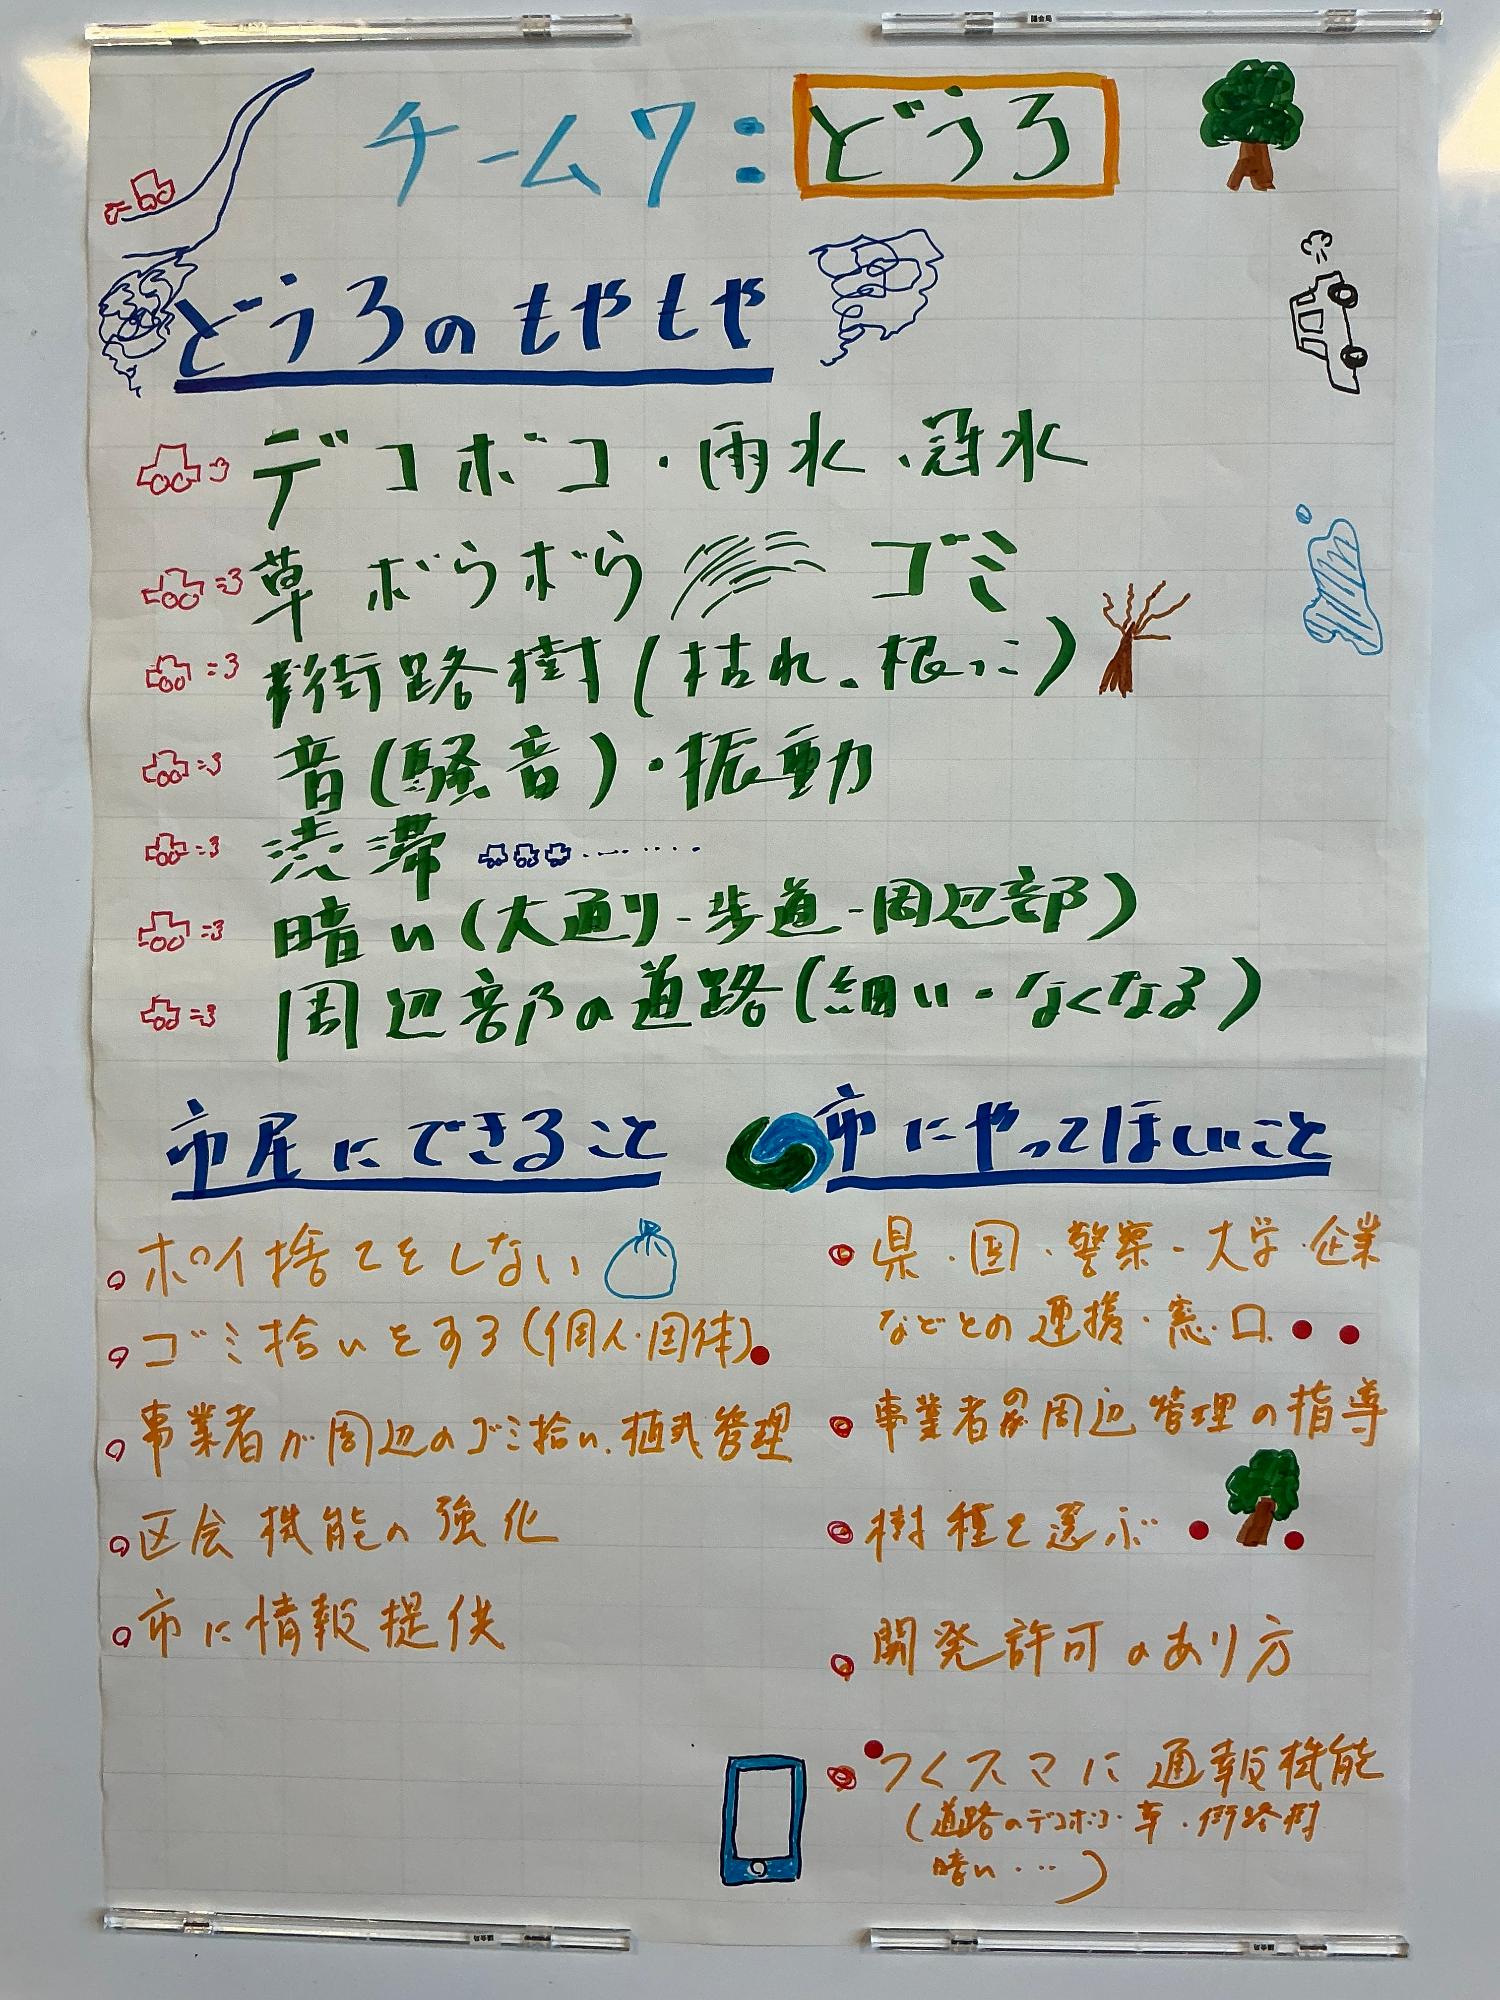 チーム7:どうろ
どうろのもやもや
デコボコ・雨水・冠水
草ボウボウ ゴミ
街路樹(枯れ・根っこ)
音(騒音)・振動
渋滞
暗い(大通り-歩道-周辺部)
周辺部の道路(細い・なくなる)
市民にできること
ポイ捨てをしない
ゴミ拾いをする(個人・団体)
事業者が周辺のゴミ拾い、植栽管理
区会機能の強化
市に情報提供
市にやってほしいこと
県・国・警察・大学・企業
などとの連携・窓口
事業者の周辺管理の指導
樹種を選ぶ
開発許可のあり方
つくスマに通報機能
(道路のデコボコ・草・街路樹
暗い・・・)